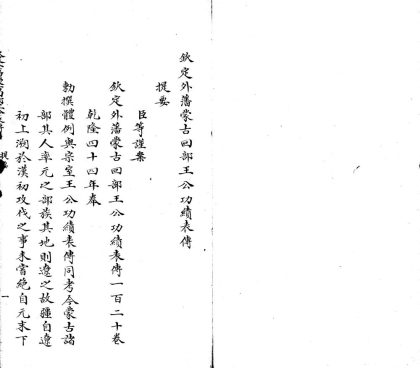 欽定外藩蒙古囘部王公功績表傳
提要
臣等謹案
欽定外藩蒙古囘部王公功績表傳一百二十卷
乾隆四十四年奉
勅撰體例與宗室王公功績表傳同考今蒙古諸
部其人率元之部族其地則遼之故疆自遼
初上溯於漢初攻伐之事未嘗絶自元末下
提
一